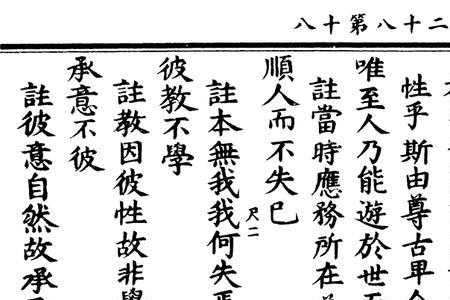 二十八第十八
性乎斯由尊古卑
唯至人乃能遊於世
註當時應務所在
順人而不失己
註本無我我何失焉
尺二
彼教不學
註教因彼性故非學
承意不彼
註彼意自然故承